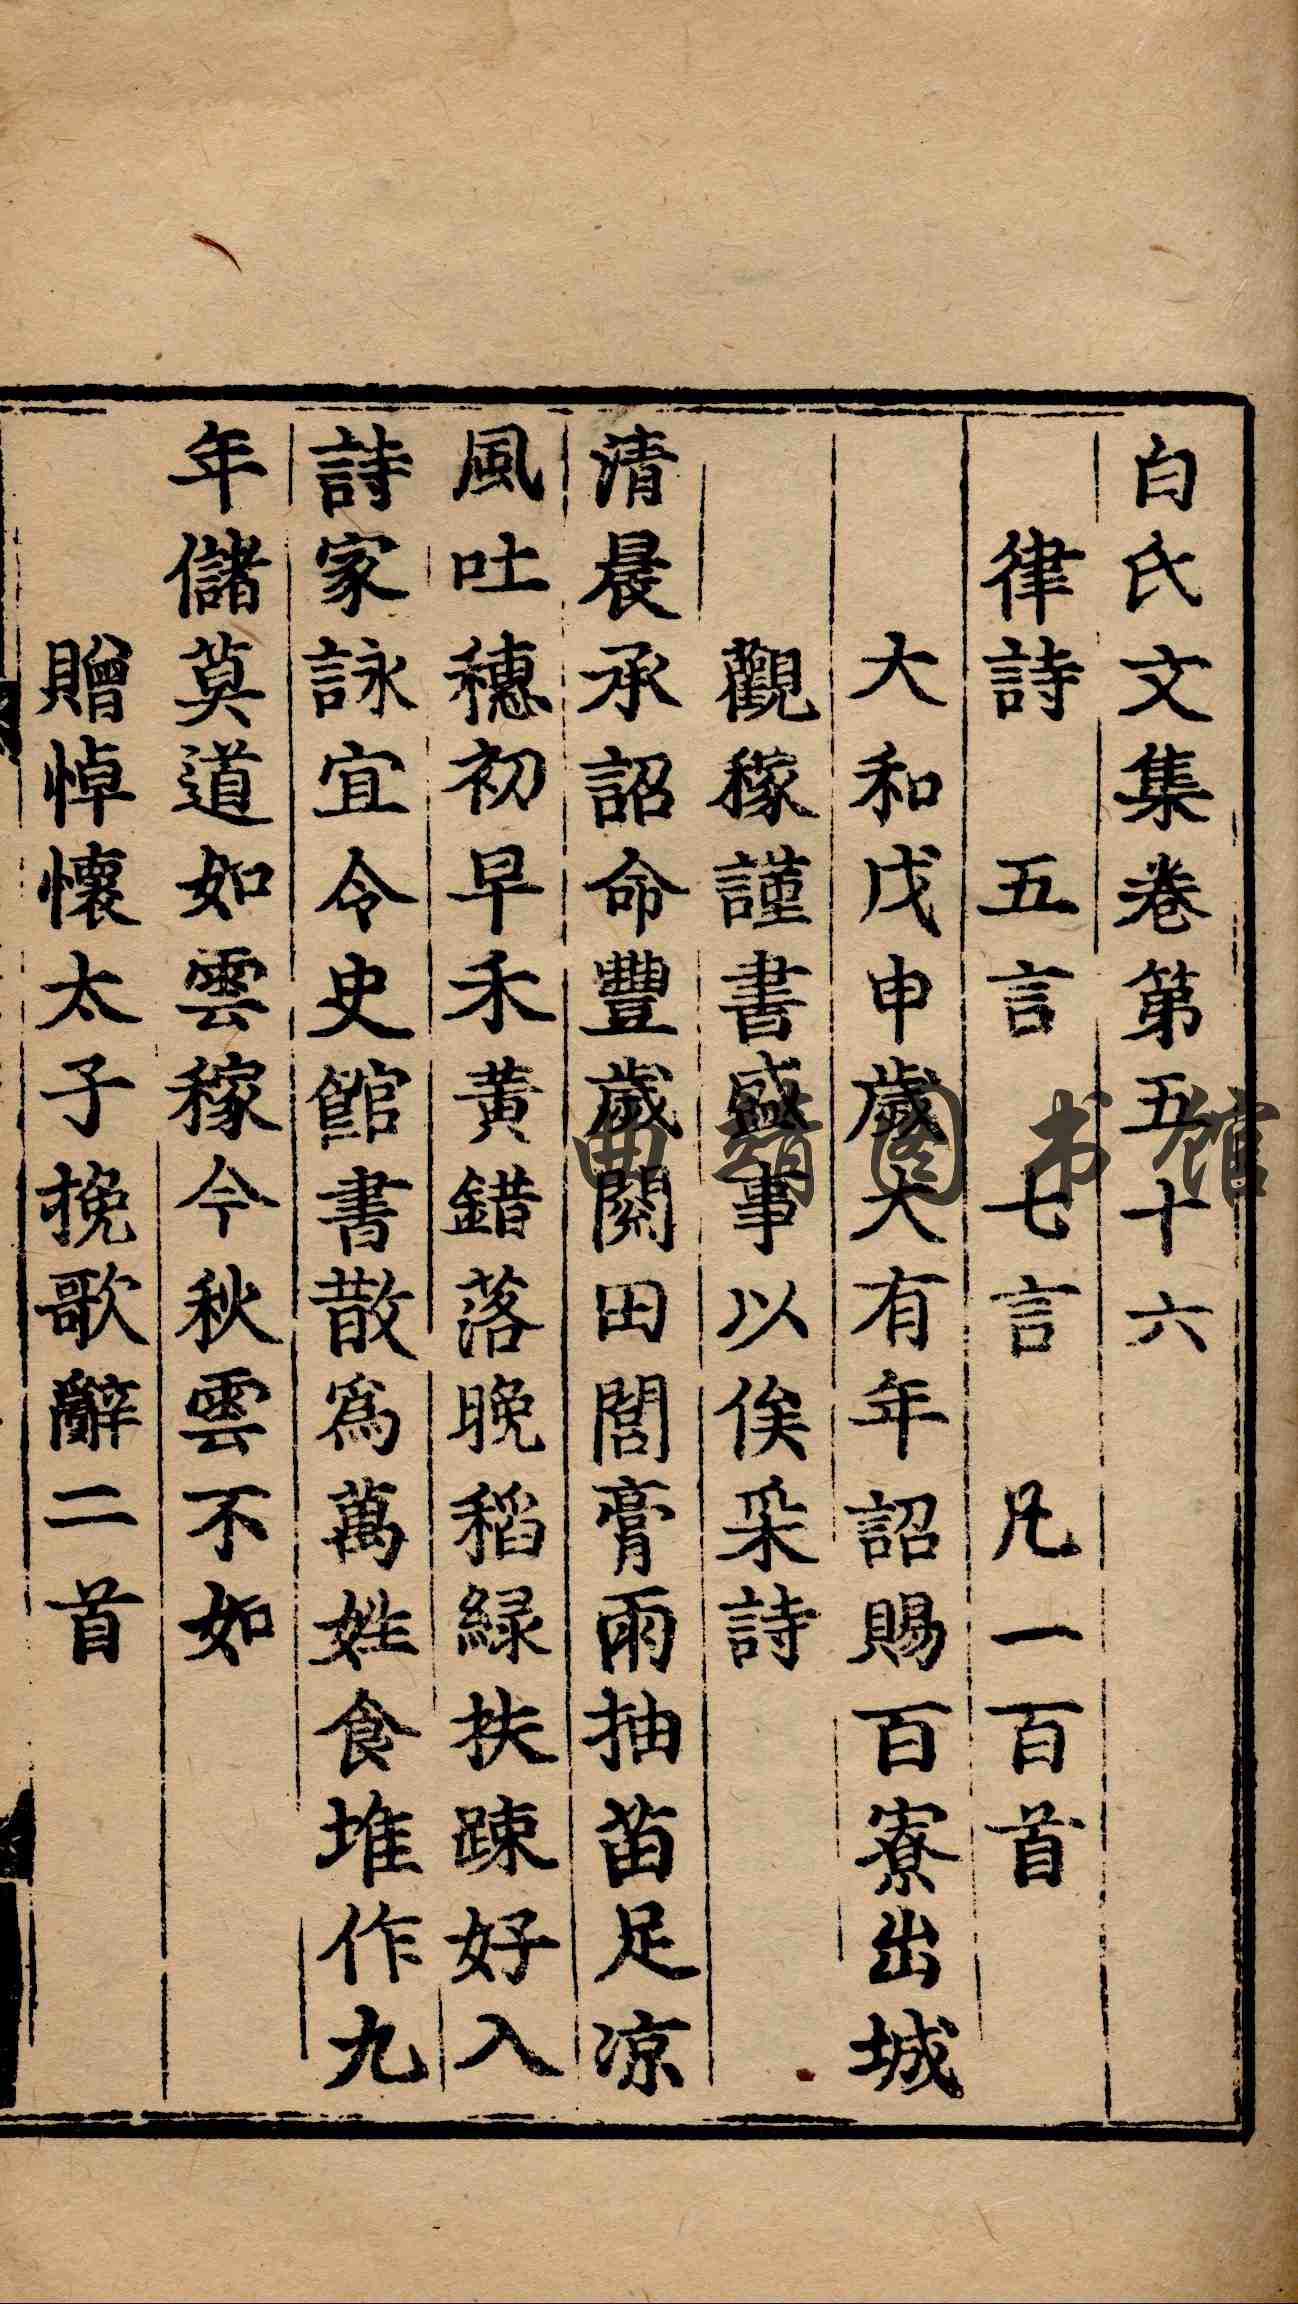 白氏文集卷第五十六
律詩 五言 七言 凡一百首
大和戊申歲大有年詔賜百寮出城
觀稼謹書盛事以俟采詩
清晨承詔命豐歲閱田閭膏雨抽苗足凉
風吐穗初早禾黃錯落晚稻緑扶踈好入
詩家詠宜令史館書散為萬姓食堆作九
年儲莫道如雲稼今秋雲不如
贈悼懷太子挽歌辭二首
图书馆